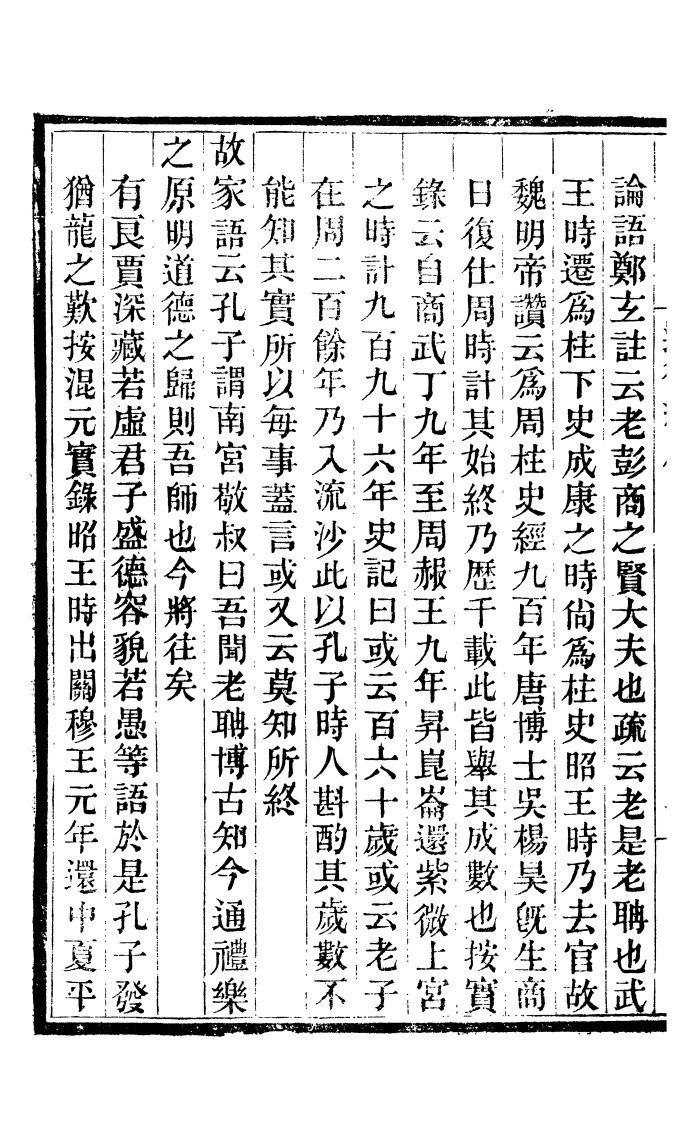 論語鄭玄註云老彭商之賢大夫也疏云老是老聃也武
王時遷爲柱下史成康之時尙爲柱史昭王時乃去官故
魏明帝讚云爲周柱史經九百年唐博士吳楊昊旣生商
日復仕周時計其始終乃歷千載此皆舉其成數也按實
錄云自商武丁九年至周赧王九年昇崑崙還紫微上宮
之時計九百九十六年史記曰或云百六十歲或云老子
在周二百餘年乃入流沙此以孔子時人斟酌其歲數不
能知其實所以每事蓋言或又云莫知所終
故家語云孔子謂南宮敬叔曰吾聞老聃博古知今通禮樂
之原明道德之歸則吾師也今將往矣
有良賈深藏若虛君子盛德容貌若愚等語於是孔子發
猶龍之歎按混元實錄昭王時出關穆王元年還中夏平